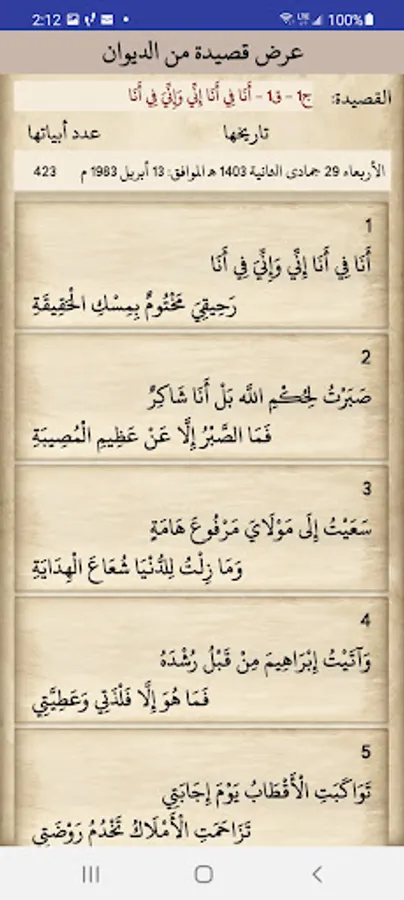 2:12
100%
عرض قصيدة من الديوان
القصيدة: ج1 - ق1 - أَنَا فِي أَنَا إِنِّي وَإِنِّيَ فِي أَنَا
تاريخها عدد أبياتها
الأربعاء 29 جمادى الثانية 1403 ه الموافق: 13 أبريل 1983 م 423
1
أَنَا فِي أَنَا إِنِّي وَإِنِّيَ فِي أَنَا
رَحِيقِيَ مَخْتُومٌ بِمِسْكِ الْحَقِيقَةِ
2
صَبَرْتُ لِحُكْمِ اللَّه بَلْ أَنَا شَاكِرٌ
فَمَا الصَّبْرُ إِلَّا عَنْ عَظِيمِ الْمُصِيبَةِ
3
سَعَيْتُ إِلَى مَوْلَايَ مَرْفُوعَ هَامَةٍ
وَمَا زِلْتُ لِلدُّنْيَا شُعَاعَ الْهِدَايَةِ
4
وَآتَيْتُ إِبْرَاهِيمَ مِنْ قَبْلُ رُشْدَهُ
فَمَا هُوَ إِلَّا فَلْذَتِي وَعَطِيَّتِي
5
تَوَاكَبَتِ الْأَقْطَابُ يَوْمَ إِجَابَتِي
تَزَاحَمَتِ الْأَمْلَاكُ تَخْدُمُ رَوْضَتِي